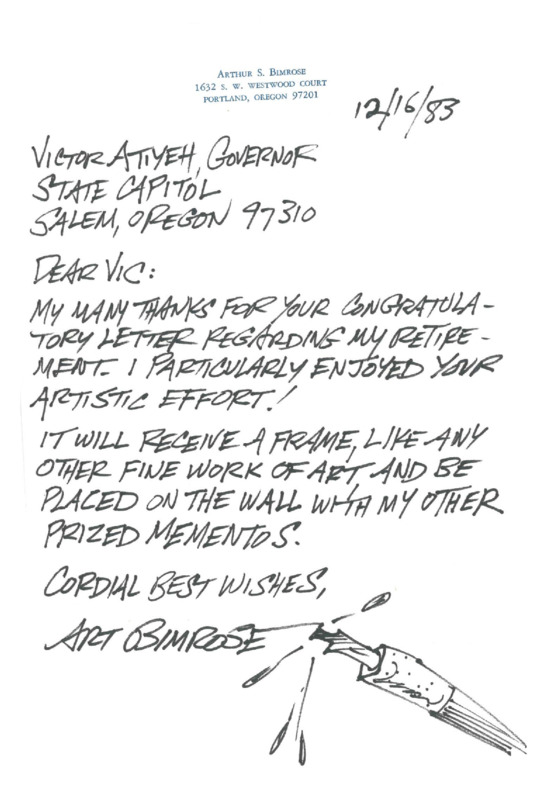 ARTHUR S. BIMROSE
1632 S. W. WESTWOOD COURT
PORTLAND, OREGON 97201
12/16/83
VICTOR ATIYEH, GOVERNOR
STATE CAPITOL
SALEM, OREGON 97310
DEAR VIC:
MY MANY THANKS FOR YOUR CONGRATULA-
TORY LETTER REGARDING MY RETIRE-
MENT. I PARTICULARLY ENJOYED YOUR
ARTISTIC EFFORT!
IT WILL RECEIVE A FRAME, LIKE ANY
OTHER FINE WORK OF ART, AND BE
PLACED ON THE WALL WITH MY OTHER
PRIZED MEMENTOS.
CORDIAL BEST WISHES,
ART BIMROSE